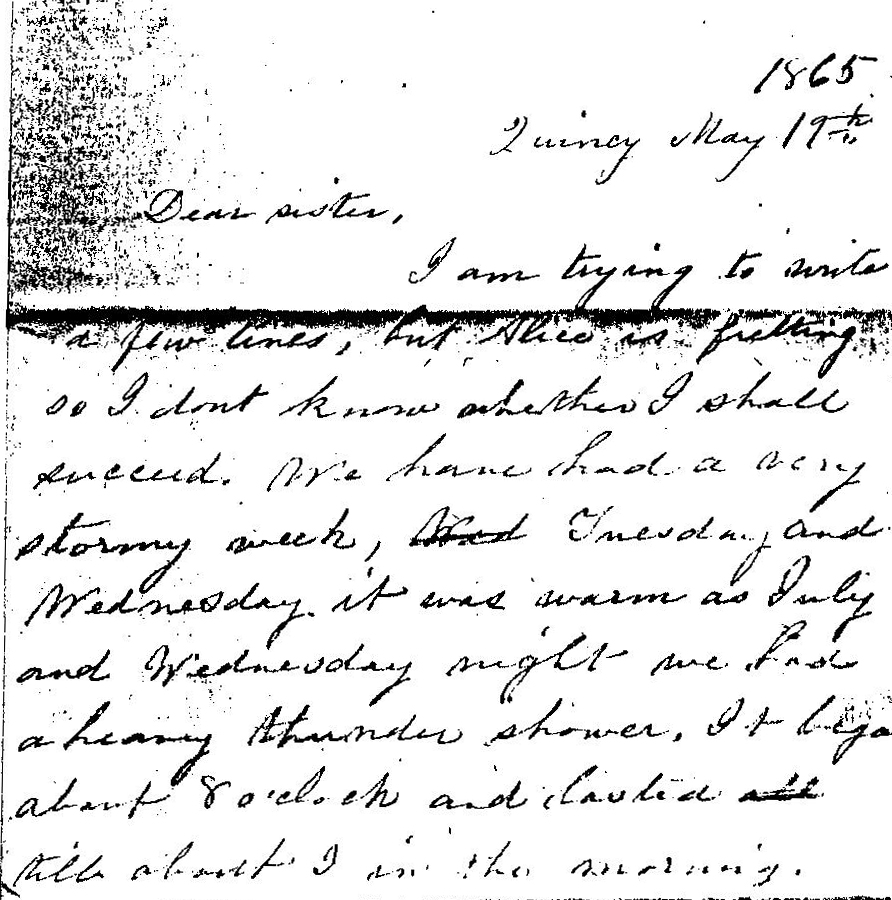 1865
Quincy May 19th
Dear sister,
I am trying to write
a few lines, but Alice is fretting
so I dont know whether I shall
succeed. We have had a very
stormy week, Wed Tuesday and
Wednesday it was warm as July
and Wednesday night we had
a heavy thunder shower. It bega
about 8 o'clock and lasted all
till about 1 in the morning.